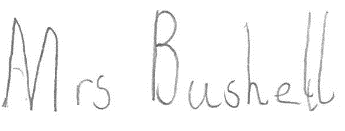 Mrs Bushell